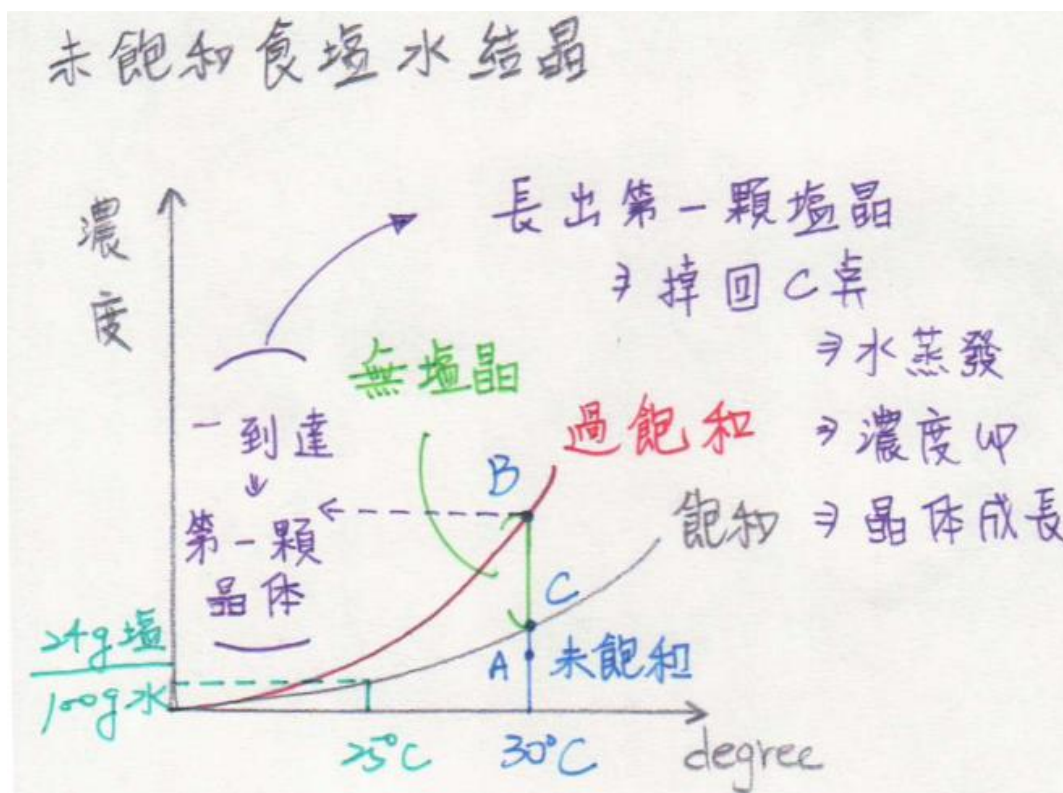 未飽和食塩水結晶
濃度
長出第一顆塩晶
⇒掉回C点
⇒水蒸發
⇒濃度up
⇒晶体成長
無塩晶
過飽和
飽和
一到達
↓
第一顆
晶体
B
C
A
未飽和
24g塩
100g水
25°C
30°C
degree